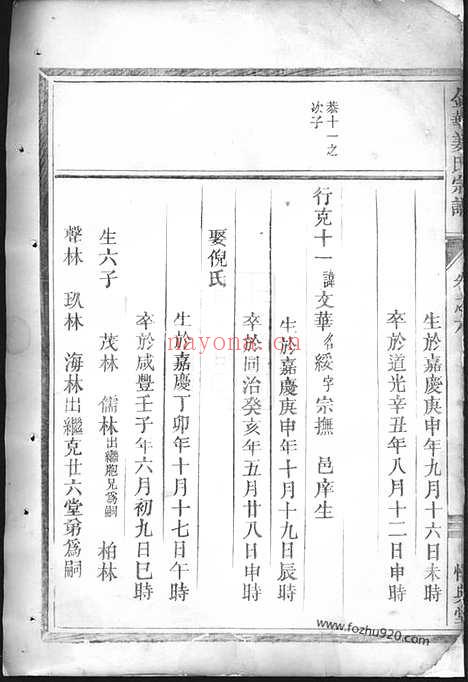 生於嘉慶庚申年九月十六日未時
卒於道光辛丑年八月十二日申時
恭十一之
次子
行克十一諱文華名綏字宗撫 邑庠生
生於嘉慶庚申年十月十九日辰時
卒於同治癸亥年五月廿八日申時
娶倪氏
生於嘉慶丁卯年十月十七日午時
卒於咸豐壬子年六月初九日巳時
生六子 茂林 儒林出繼胞兄爲嗣 柏林
聲林 玖林 海林出繼克廿六堂弟爲嗣
nayona.cn
www.fozhu920.com